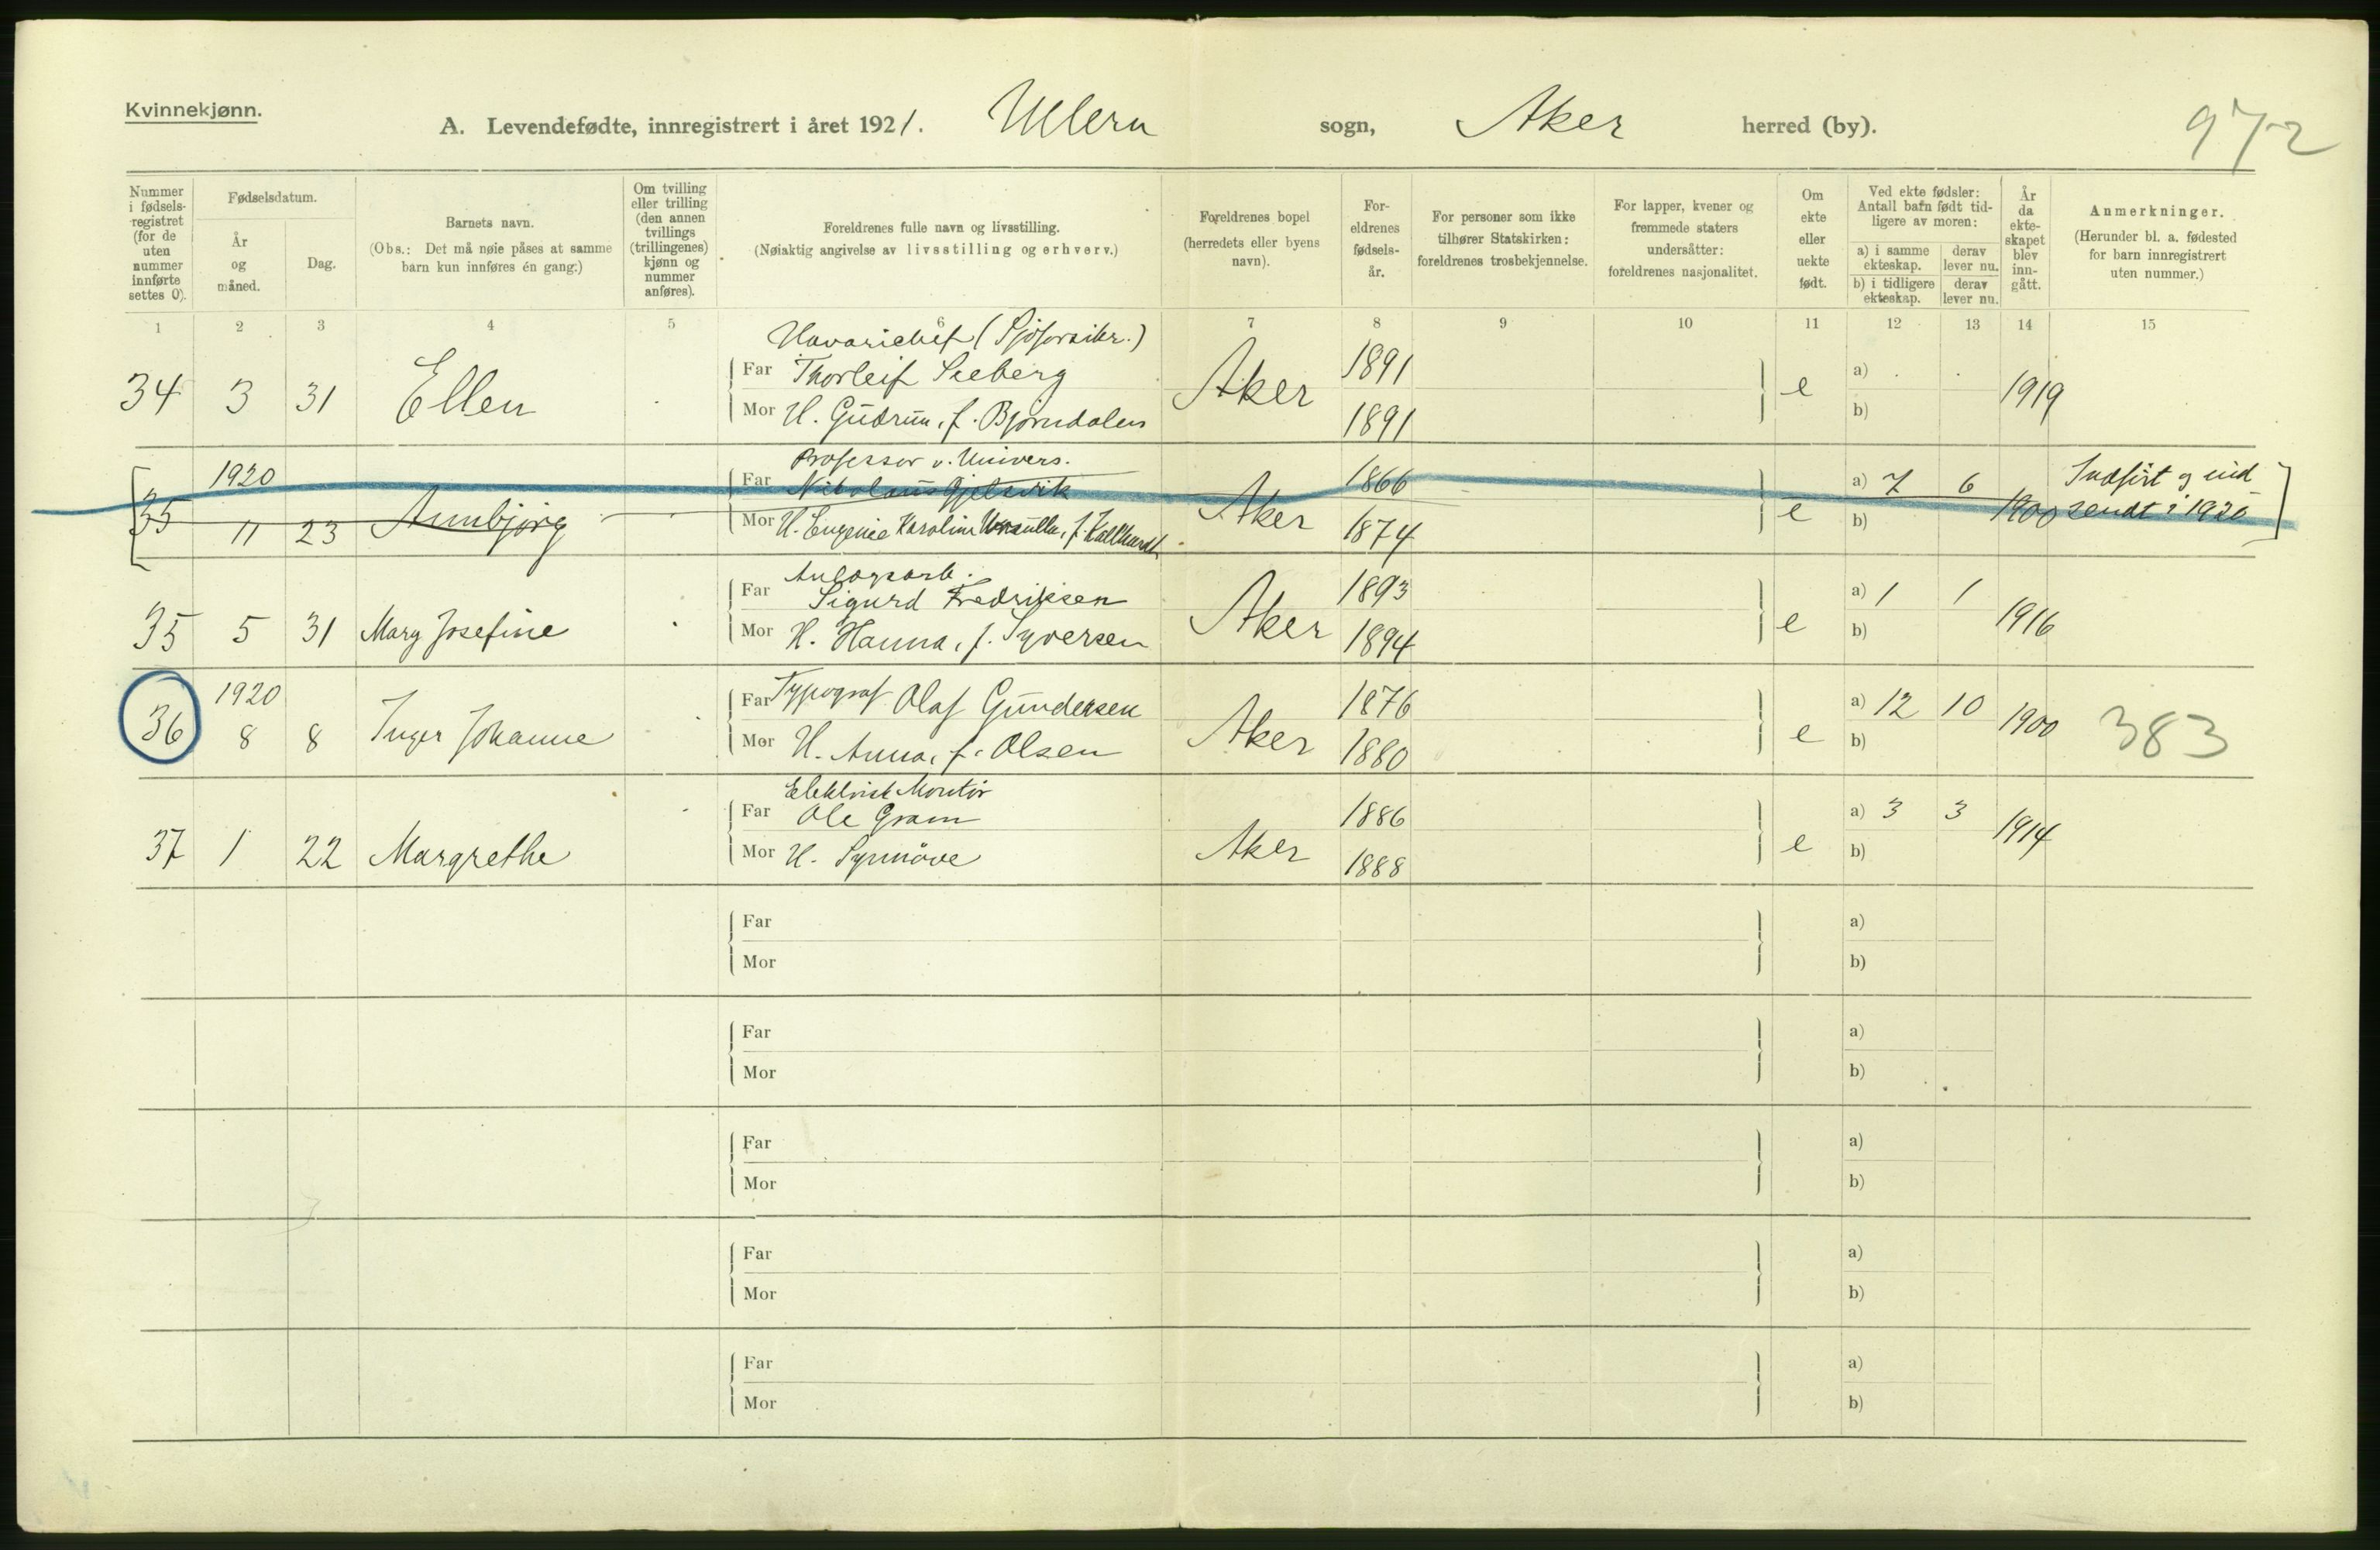 Kvinnekjønn.
A. Levendefødte, innregistrert i året 1921. Ullern sogn, Aker herred (by).
972
Nummer i fødselsregistret (for de uten nummer innførte settes 0).
Fødselsdatum.
År og måned.
Dag.
Barnets navn.
(Obs.: Det må nøie påses at samme barn kun innføres én gang.)
Om tvilling eller trilling (den annen tvillings (trillingenes) kjønn og nummer anføres).
Foreldrenes fulle navn og livsstilling.
(Nøiaktig angivelse av livsstilling og erhverv.)
Foreldrenes bopel (herredets eller byens navn).
Foreldrenes fødselsår.
For personer som ikke tilhører Statskirken: foreldrenes trosbekjennelse.
For lapper, kvener og fremmede staters undersåtter: foreldrenes nasjonalitet.
Om ekte eller uekte født.
Ved ekte fødsler: Antall barn født tidligere av moren:
a) i samme ekteskap.
derav lever nu.
b) i tidligere ekteskap.
derav lever nu.
År da ekteskapet blev inngått.
Anmerkninger.
(Herunder bl. a. fødested for barn innregistrert uten nummer.)
1 2 3 4 5 6 7 8 9 10 11 12 13 14 15
Havarichef (Sjøforsikr.)
34 3 31 Ellen Far Thorleif Seeberg Aker 1891 e a) 1919
Mor H. Gudrun, f. Bjørndalen 1891 b)
1920 Professor v. Univers.
35 11 23 Annbjørg Far Nikolaus Gjelsvik Aker 1866 e a) 7 6 1900 Indført og ind
Mor H. Eugenie Karoline f. 1874 b) sendt i 1920
Anlægsarb.
35 5 31 Mary Josefine Far Sigurd Fredriksen Aker 1893 e a) 1 1 1916
Mor H. Hanna, f. Syversen 1894 b)
1920
36 8 8 Inger Johanne Far Typograf Olaf Gundersen Aker 1876 e a) 12 10 1900 383
Mor H. Anna, f. Olsen 1880 b)
Elektrisk Montør
37 1 22 Margrethe Far Ole Gram Aker 1886 e a) 3 3 1914
Mor H. Synnøve 1888 b)
Far a)
Mor b)
Far a)
Mor b)
Far a)
Mor b)
Far a)
Mor b)
Far a)
Mor b)